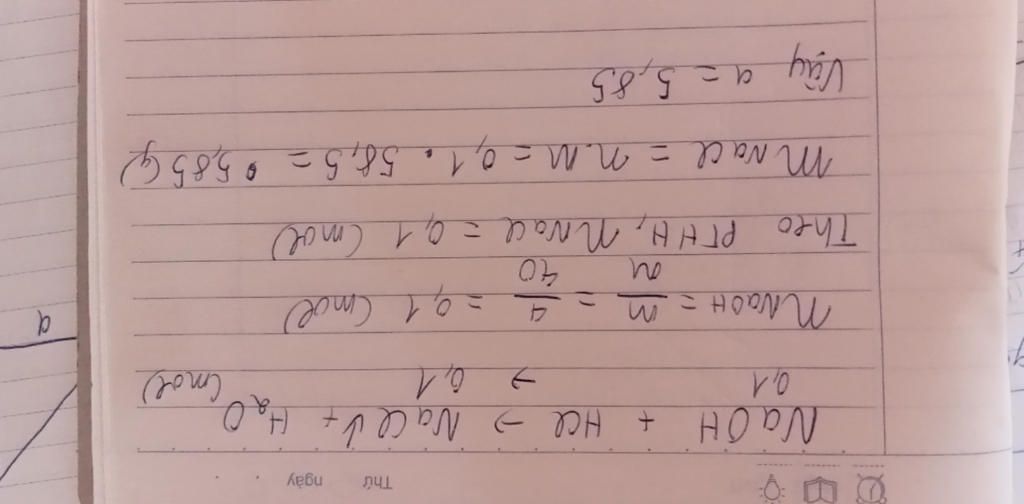 Thứ ngày
NaOH + HCl → NaCl ↓ + H2O
0,1 → 0,1 (mol)
nNaOH = m/M = 4/40 = 0,1 (mol)
Theo PTHH, nNaCl = 0,1 (mol)
mNaCl = n.M = 0,1 . 58,5 = 5,85 (g)
Vậy a = 5,85
a